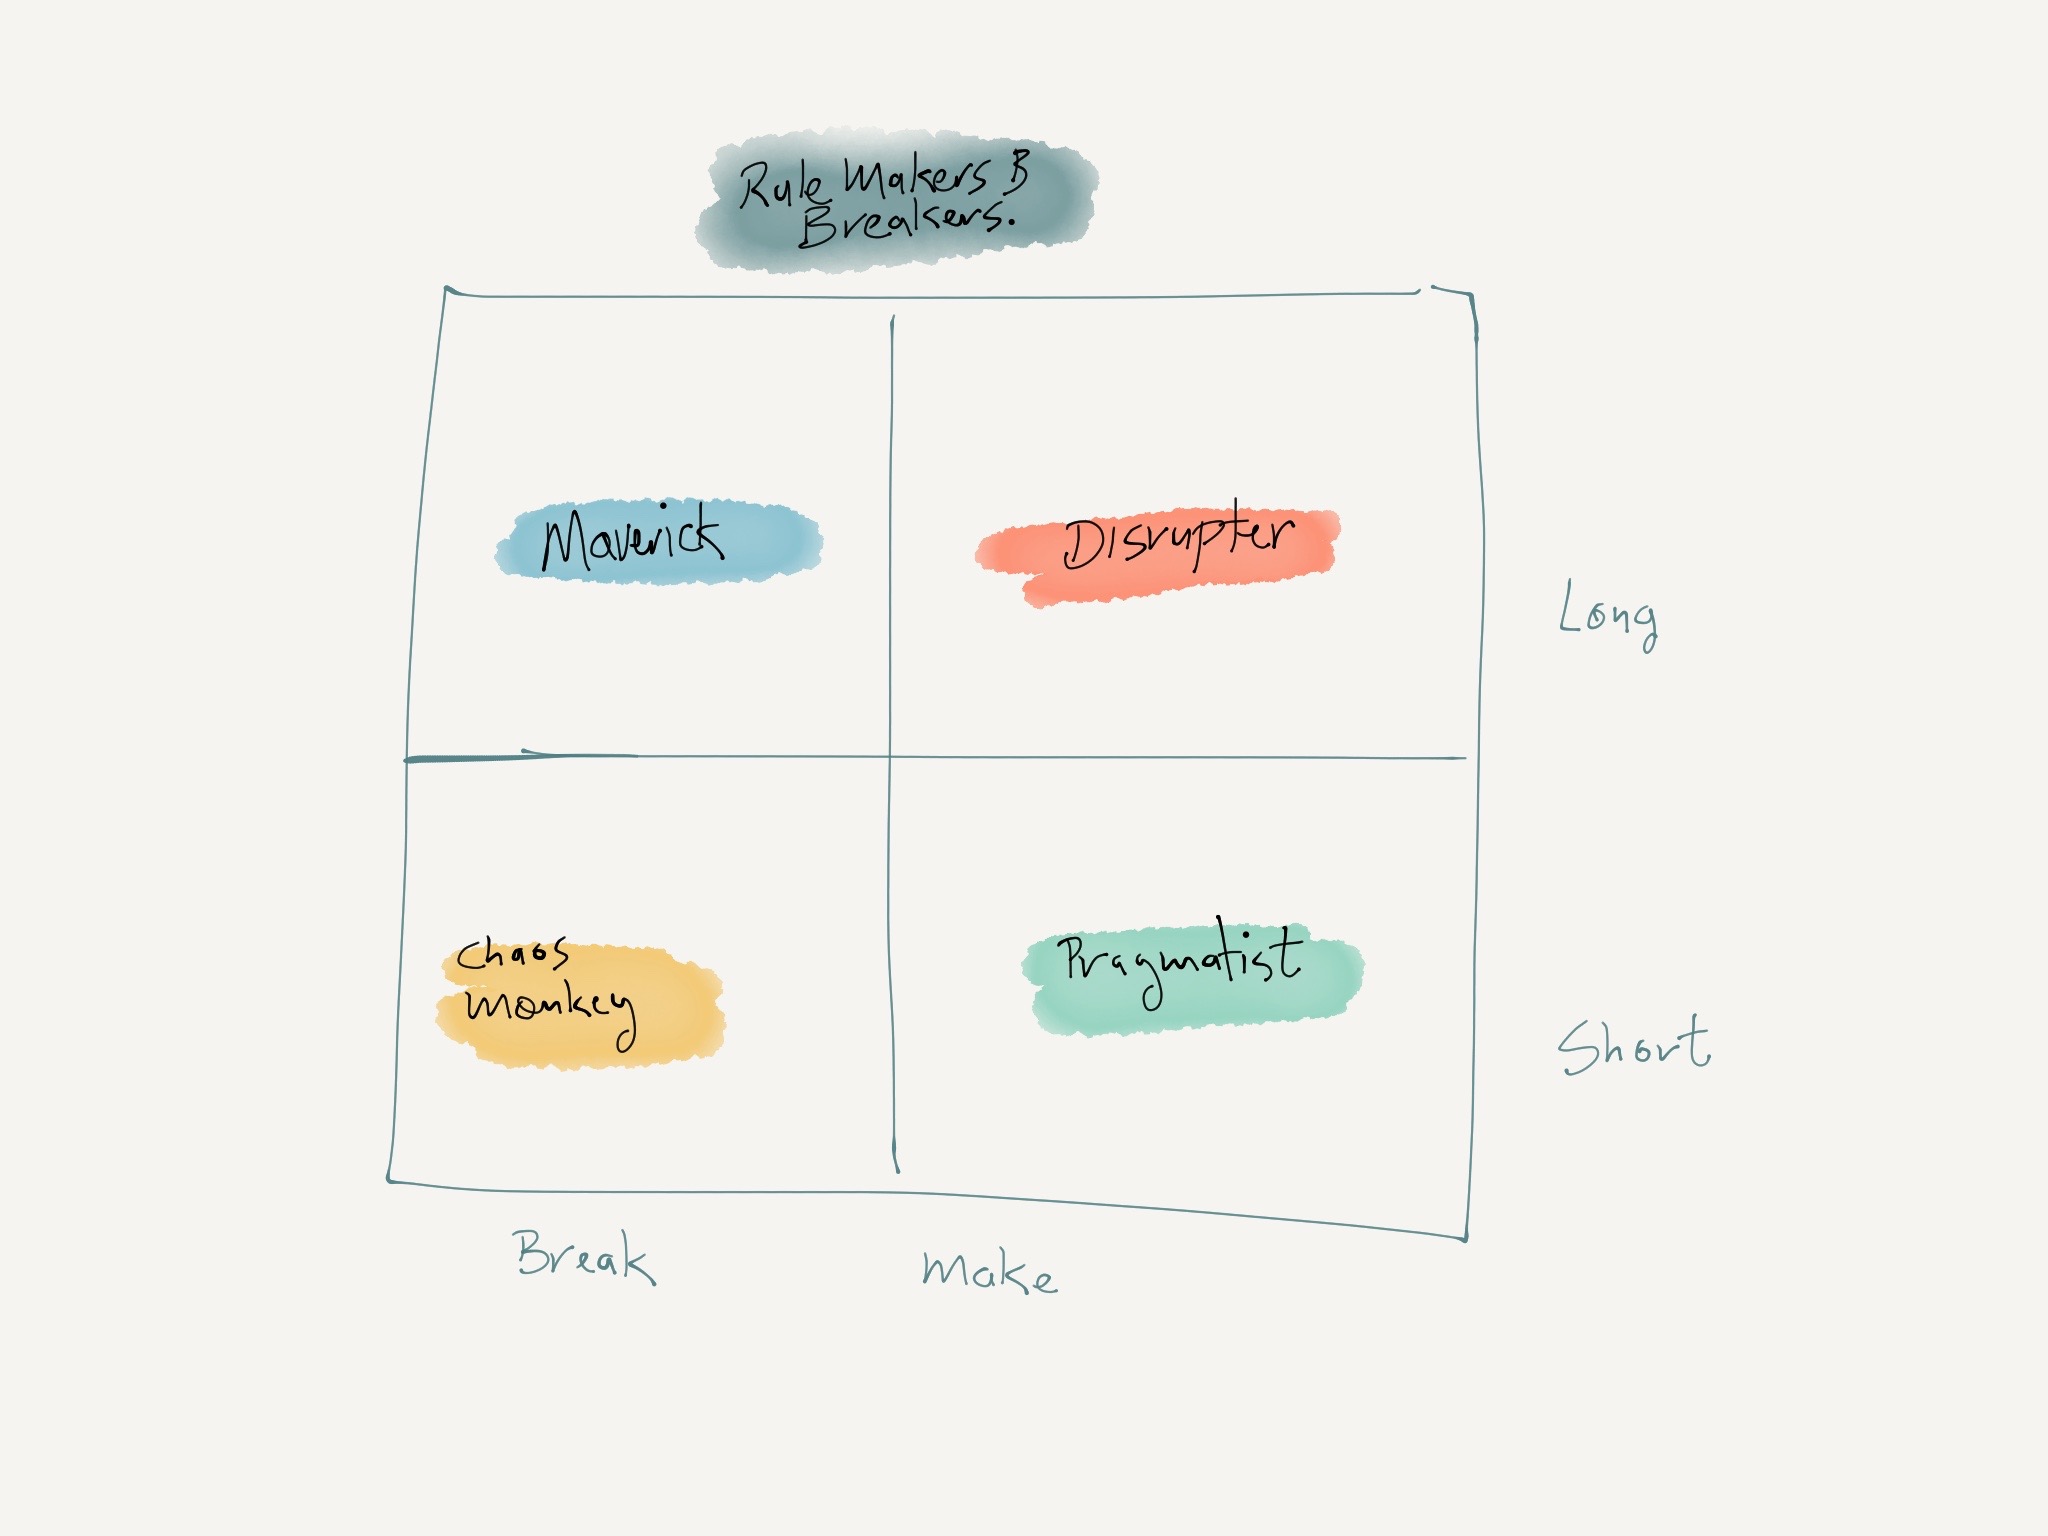 Rule Makers B
Breakers.
Maverick
Disrupter
Long
Chaos
monkey
Pragmatist
Short
Break
Make